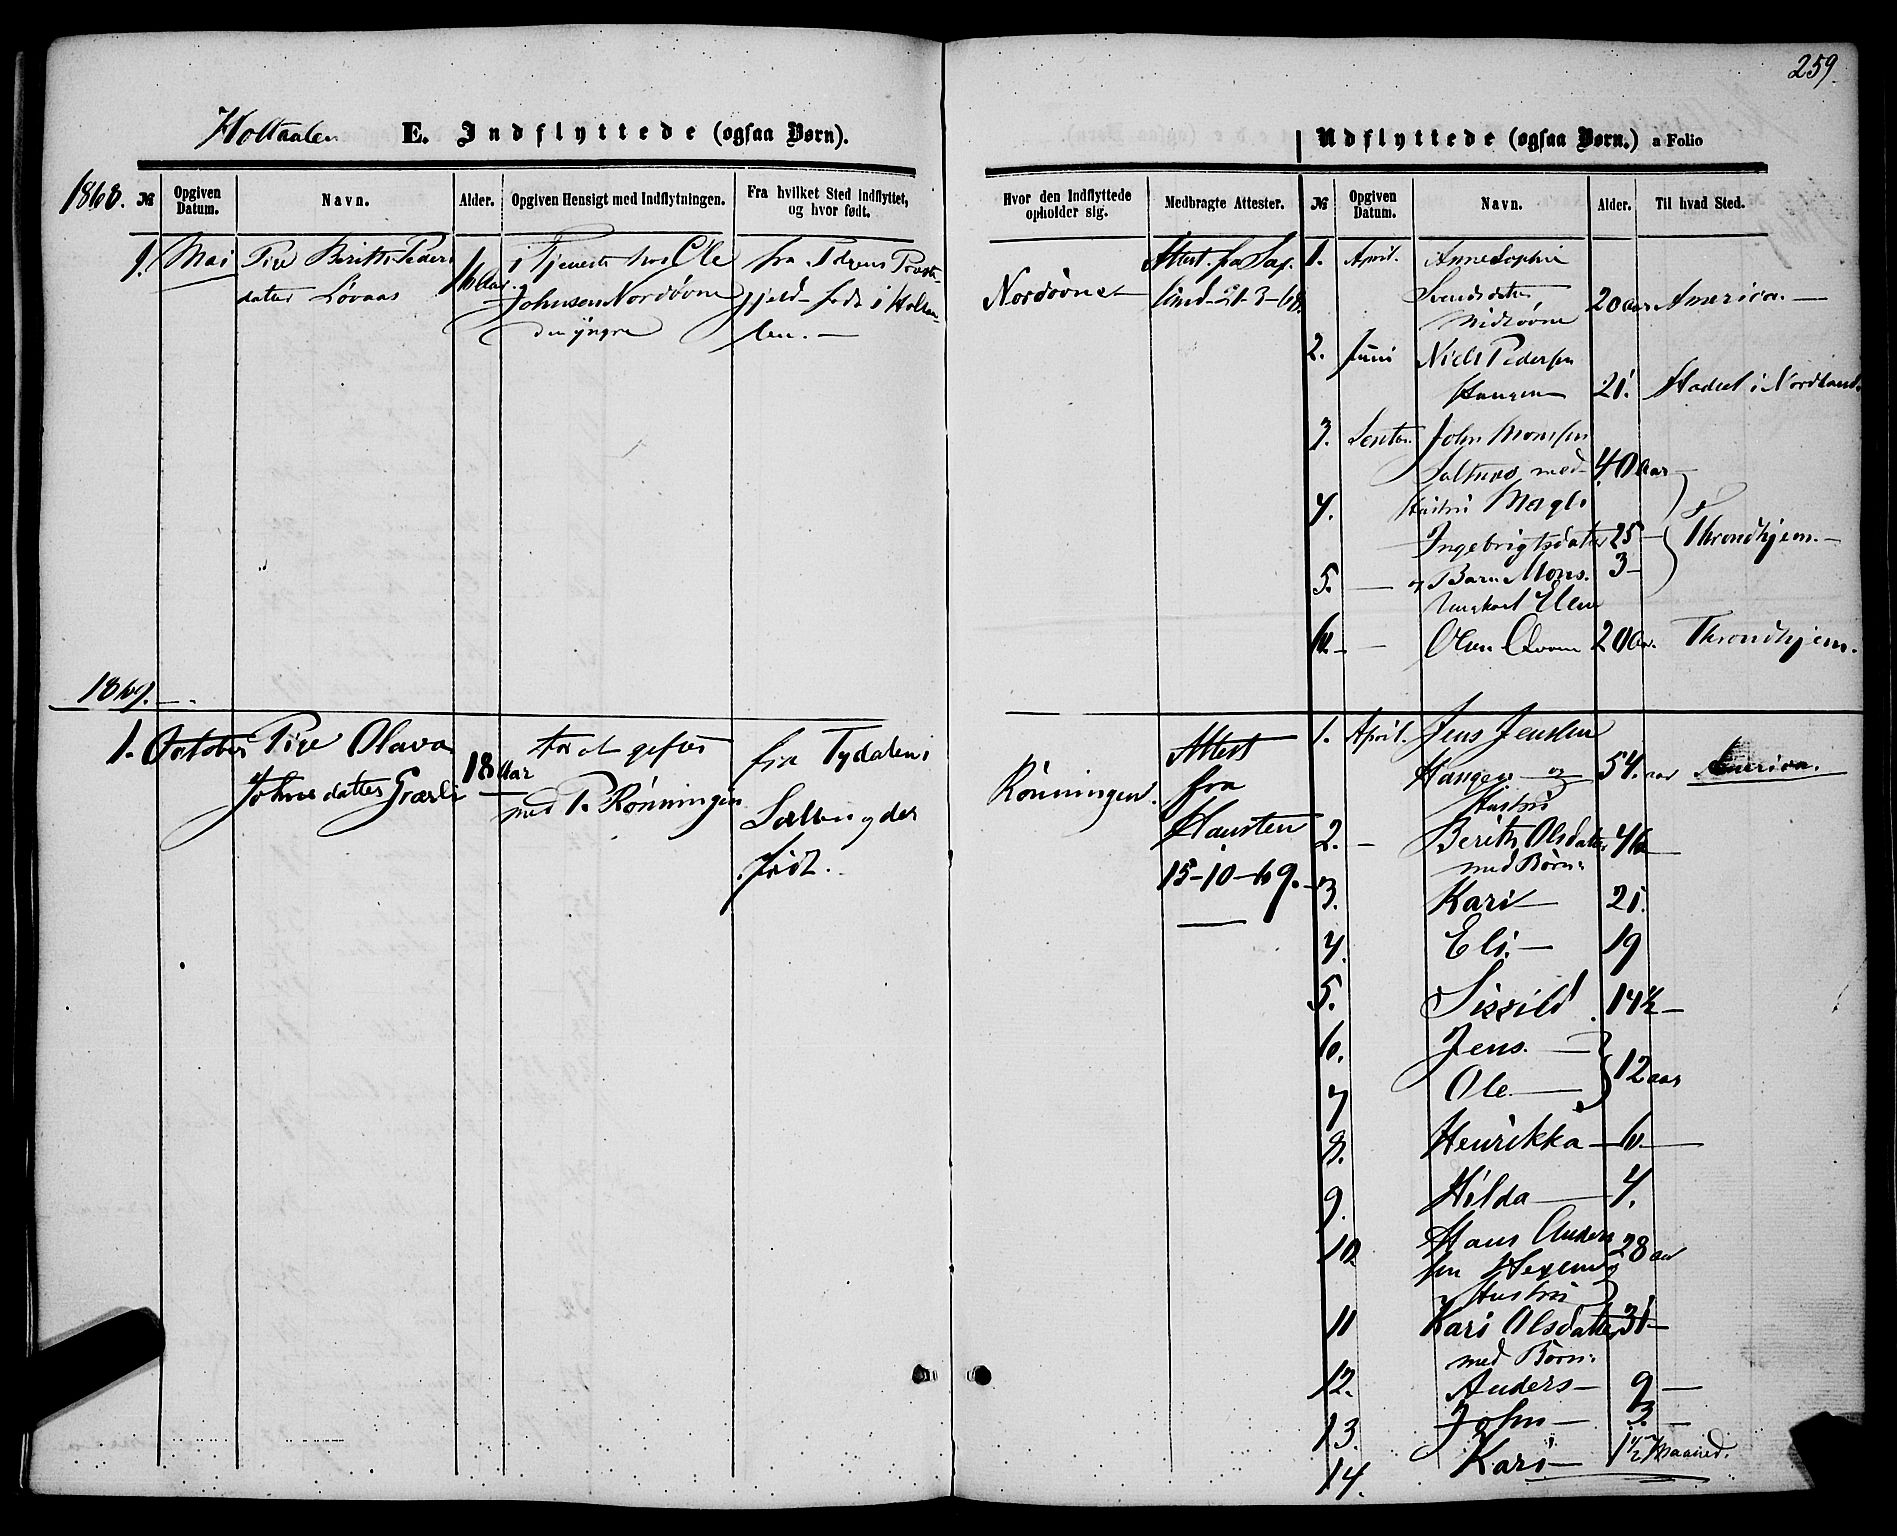 259
Holtaalen E. Indflyttede (ogsaa Børn).
1868. № Opgiven Datum. Navn. Alder. Opgiven Hensigt med Indflytningen. Fra hvilket Sted indflyttet, og hvor født.
1. Mai Pige Berith Peders 16 Aar. i Tjeneste hos Ole fra
datter Løvaas Johnsen Nordøvne gjeld født i Holtaa-
den yngre len.
1869.
1. October Pige Olava 18 Aar for at giftes fra Tydalen i
Johnsdatter Græsli med P. Rønningen Selbu og der
født.
Udflyttede (ogsaa Børn.) a Folio
Hvor den Indflyttede opholder sig. Medbragte Attester. № Opgiven Datum. Navn. Alder. Til hvad Sted.
Nordøvne Attest fra
21-3-68.
1. April. Anne Sophie
Svendsdatter 20 aar America.
Midtøvne
2. Juni Niels Pedersen
Haugen 21. Stadset i Nordland.
3. Septbr. John Monsen
med 40 aar
4. Hustru
Ingebrigtsdatter 25 Throndhjem.
5. og Barn Mons. 3
Ungkarl Elen
6. Olsen 20 Aar. Throndhjem.
Rønningen. Attest
fra
15-10-69.
1. April. Jens Jensen
Haugen og 54. aar America.
Hustru
2. Berith Olsdatter 46
med Børn:
3. Kari 21.
4. Eli. 19
5. Sissild 14½
6. Jens.
7 Ole 12 aar
8. Henrikka 6.
9. Hilda 4.
10. Hans Anders
sen 28 aar
Hustru
11 Kari Olsdatter 31
med Børn:
12. Anders 9
13. John 3.
14. Kari 1½ Maaned.